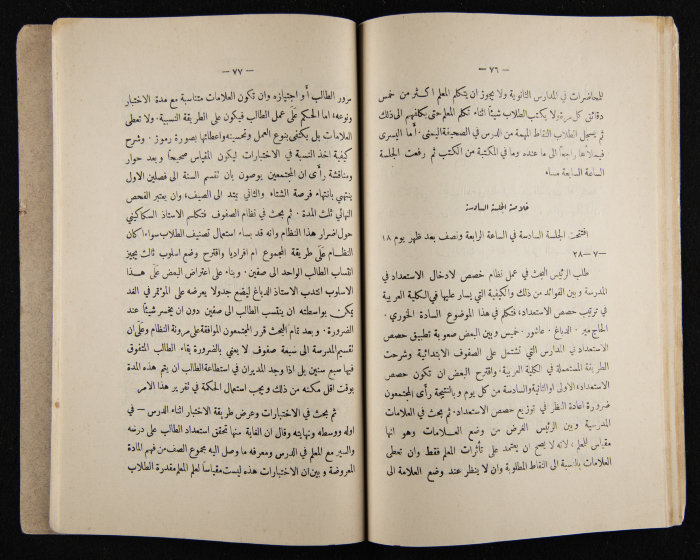 — ٧٦ —
للمحاضرات في المدارس الثانوية ولا يجوز ان يتكلم المعلم اكثر من خمس
دقائق كل مرة ولا يكتب الطلاب شيئاً اثناء تكلم المعلم حتى يكلفهم الى ذلك
ثم يسجل الطلاب النقاط المهمة من الدرس في الصحيفة اليمنى. أما اليسرى
فيملأها راجعاً الى ما عنده وما في المكتبة من الكتب ثم رفعت الجلسة
الساعة السابعة مساء.
خلاصة الجلسة السادسة
افتتحت الجلسة السادسة في الساعة الرابعة ونصف بعد ظهر يوم ١٨
—٧—٢٨
طلب الرئيس البحث في عمل نظام حصص لادخال الاستعداد في
المدرسة وبين الفوائد من ذلك والكيفية التي يسار عليها في الكلية العربية
في ترتيب حصص الاستعداد، فتكلم في هذا الموضوع السادة الخوري.
الحاج مير. الدباغ. عاشور. خميس وبين البعض صعوبة تطبيق حصص
الاستعداد في المدارس التي تشتمل على الصفوف الابتدائية وشرحت
الطريقة المستعملة في الكلية العربية. واقترح البعض ان تكون حصص
الاستعداد، الاولى او الثانية والسادسة من كل يوم وبالنتيجة رأى المجتمعون
ضرورة اعادة النظر في توزيع حصص الاستعداد. ثم بحث في العلامات
المدرسية وبين الرئيس الغرض من وضع العلامات وهو انها
مقياس للمعلم، لانه لا يصح ان يعتمد على تأثرات المعلم فقط وان تعطى
العلامات بالنسبة الى النقاط المطلوبة وان لا ينظر عند وضع العلامة الى
— ٧٧ —
مرور الطالب أو اجتيازه وان تكون العلامات متناسبة مع مدة الاختبار
ونوعه اما الحكم على عمل الطالب فيكون على الطريقة النسبية. ولا تعطى
العلامات بل يكتفى بنوع العمل وتحسينه واعطائها بصورة رموز. وشرح
كيفية اخذ النسبة في الاختبارات ليكون المقياس صحيحاً وبعد حوار
ومناقشة رأى ان المجتمعين يوصون بان تقسم السنة الى فصلين الاول
ينتهي بانتهاء فرصة الشتاء والثاني يمتد الى الصيف، وان يعتبر الفحص
النهائي ثلث المدة. ثم بحث في نظام الصفوف فتكلم الاستاذ السكاكيني
حول اضرار هذا النظام وانه قد يساء استعمال تصنيف الطلاب سواء اكان
النظام على طريقة المجموع ام افرادياً واقترح وضع اسلوب ثالث يجيز
انتساب الطالب الواحد الى صفين. وبناء على اعتراض البعض على هذا
الاسلوب انتدب الاستاذ الدباغ ليضع جدولا يعرضه على المؤتمر في الغد
يمكن بواسطته ان ينتسب الطالب الى صفين دون ان يخسر شيئاً عند
الضرورة. وبعد تمام البحث قرر المجتمعون الموافقة على مرونة النظام وعلى ان
تقسيم المدرسة الى سبعة صفوف لا يعني بالضرورة بقاء الطالب المتفوق
فيها سبع سنين بل اذا وجد المديران في استطاعة الطالب ان يتم هذه المدة
بوقت اقل مكنه من ذلك ويجب استعمال الحكمة في تقرير هذا الامر
ثم بحث في الاختبارات وعرض طريقة الاختبار اثناء الدرس — في
اوله ووسطه ونهايته وقال ان الغاية منها تحقق استعداد الطالب على درسه
والسير مع المعلم في الدرس ومعرفة ما وصل اليه مجموع الصف من فهم المادة
المعروضة وبين ان الاختبارات هذه ليست مقياساً لعلم المعلم مقدرة الطلاب